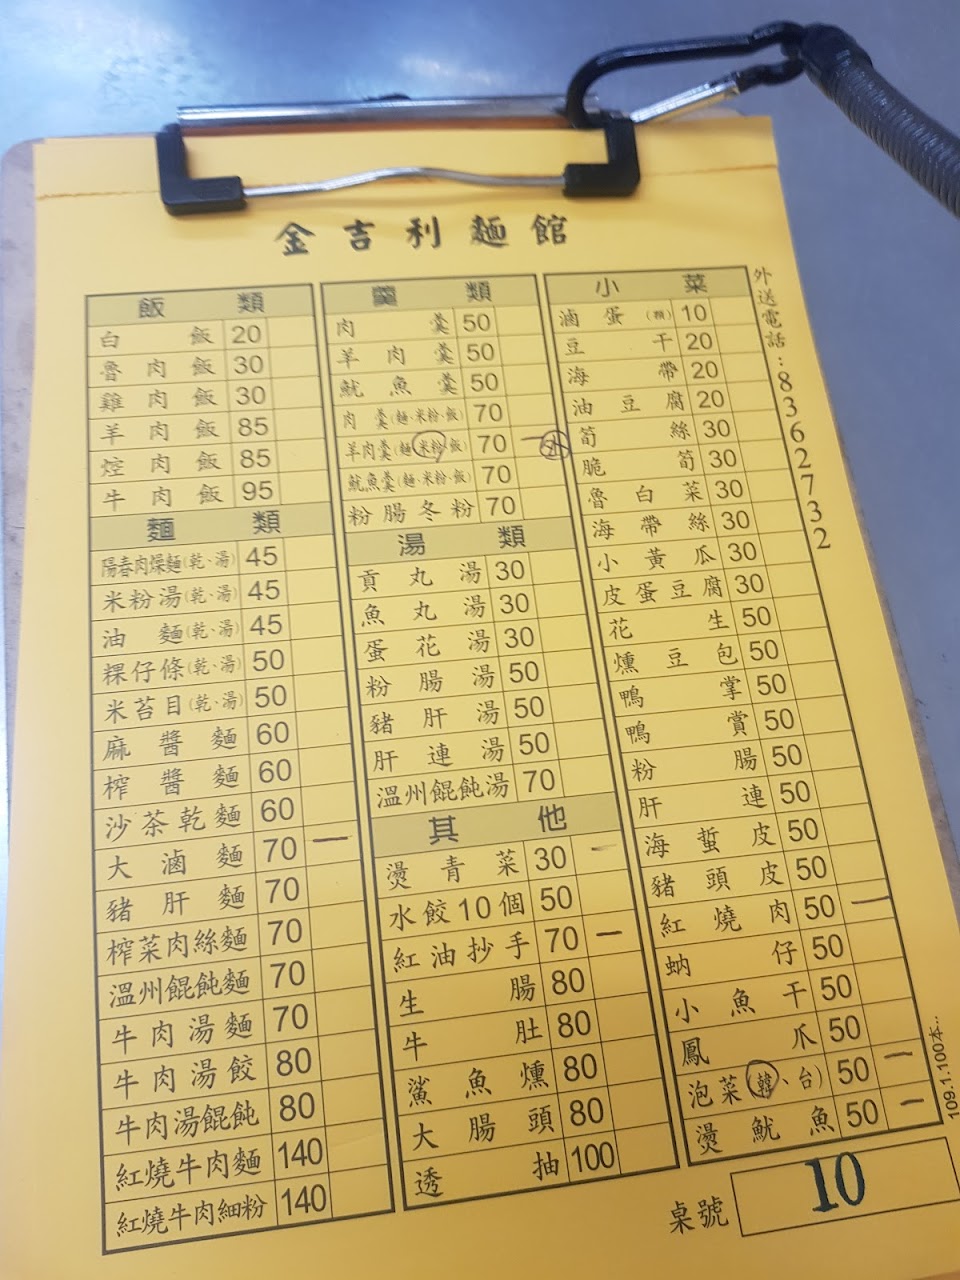 金吉利麵館
飯類
白飯 20
魯肉飯 30
雞肉飯 30
羊肉飯 85
焢肉飯 85
牛肉飯 95
麵類
陽春肉燥麵(乾、湯) 45
米粉湯(乾、湯) 45
油麵(乾、湯) 45
粿仔條(乾、湯) 50
米苔目(乾、湯) 50
麻醬麵 60
榨醬麵 60
沙茶乾麵 60
大滷麵 70 一
豬肝麵 70
榨菜肉絲麵 70
溫州餛飩麵 70
牛肉湯麵 70
牛肉湯餃 80
牛肉湯餛飩 80
紅燒牛肉麵 140
紅燒牛肉細粉 140
羹類
肉羹 50
羊肉羹 50
魷魚羹 50
肉羹(麵、米粉、飯) 70
羊肉羹(麵、米粉、飯) 70 一
魷魚羹(麵、米粉、飯) 70
粉腸冬粉 70
湯類
貢丸湯 30
魚丸湯 30
蛋花湯 30
粉腸湯 50
豬肝湯 50
肝連湯 50
溫州餛飩湯 70
其他
燙青菜 30 一
水餃10個 50
紅油抄手 70 一
生腸 80
牛肚 80
鯊魚燻 80
大腸頭 80
透抽 100
小菜
滷蛋(顆) 10
豆干 20
海帶 20
油豆腐 20
筍絲 30
脆筍 30
魯白菜 30
海帶絲 30
小黃瓜 30
皮蛋豆腐 30
花生 50
燻豆包 50
鴨掌 50
鴨賞 50
粉腸 50
肝連 50
海蜇皮 50
豬頭皮 50
紅燒肉 50 一
蚋仔 50
小魚干 50
鳳爪 50
泡菜(韓、台) 50 一
燙魷魚 50 一
外送電話:8362732
109.1.100本..
桌號 10